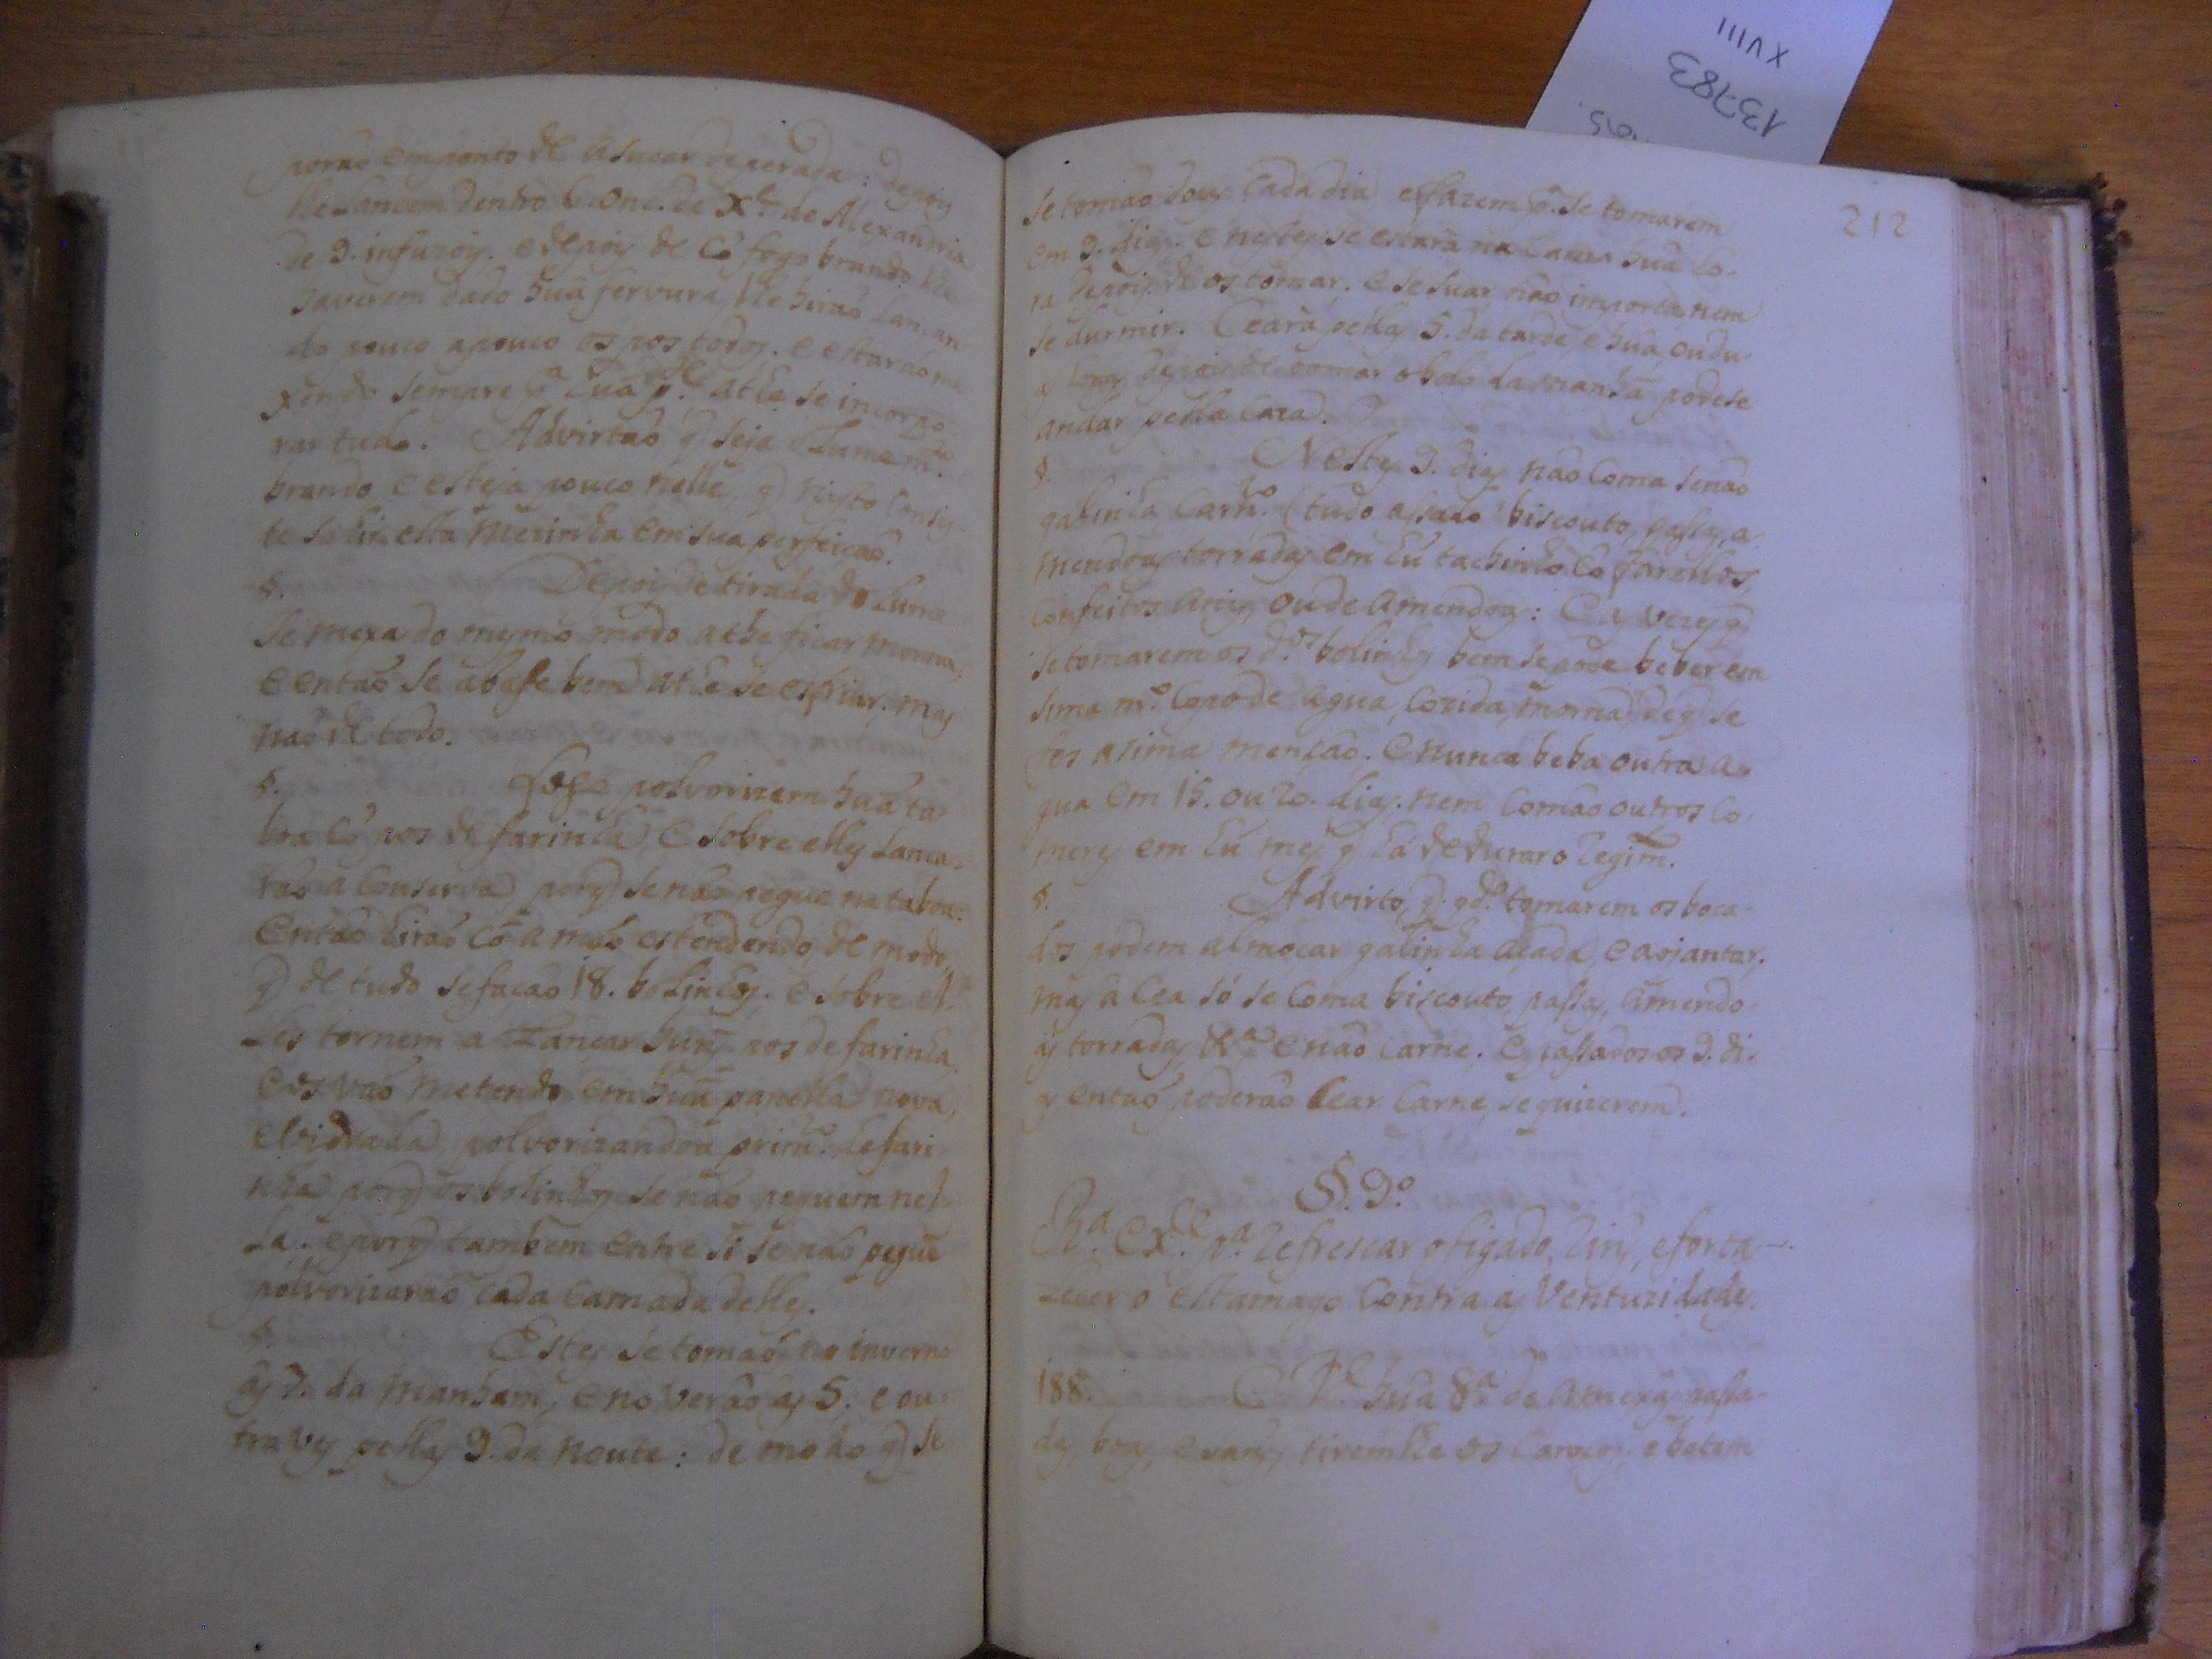 porão em ponto de asucar deperada: depois
lhe lancem dentro 6. onc. de X.e de Alexandria
de 9. infuzois. e depois de cõ fogo brando lhe
haverem dado huã fervura, lhe hirão lancan
do pouco apouco os pos todos. e estarão me-
xendo sempre p.a huã p.te athe se incorpo-
rar tudo. Advirtaõ q̃ seja o lume m.to
brando e esteja pouco nelle, q̃ nisto consis-
te sahir esta Merinha em sua perfeiçaõ.
§. Depois de tirada do lume
se mexa do mesmo modo athe ficar morna,
e entaõ se abafe bem athe se esfriar; mas
naõ de todo.
§. Logo polvorizem huã ta-
boa cõ pos de farinha, e sobre elles lanca-
rão a conserva porq̃ se não pegue na taboa:
Entaõ hiraõ cõ a maõ estendendo, de modo,
q̃ de tudo se façaõ 18. bolinhos. e sobre el-
les tornem a Lancar huns pos de farinha,
e os vaõ metendo em huã panella nova,
e vidrada polvorizandoa prim.ro de fari
nha porq̃ os bolinhos se naõ peguem nel-
la. e porq̃ tambem entre si se não peguẽ
polvorizaraõ cada camada delles.
§. Estes se tomaõ no inverno
ás 7. da manham, e no veraõ as 5. e ou-
tra ves pellas 9. da noute: de modo q̃ se
212
se tomaõ dous cada dia e se fazem p.a se tomarem
em 9. dias. e nestes se estará na cama huã ho-
ra depois de os tomar. e se suar, não importa, nem
se durmir. Ceará pellas 5. da tarde, e huã, ou du-
as horas depois de tomar o bolo da manhã podese
andar pella caza.
§. Nestes 9. dias não coma senão
galinha carn.ro (tudo assado) biscouto, passas, a-
mendoas torradas em hũ tachinho cõ farellos,
confeitos anis, ou de amendoas: E as vezes q̃
se tomarem os d.os bolinhos bem se pode beber em
sima m.o copo de agua, cozida, morna, de q̃ se
fes asima menção. e nunca beba outra a-
gua em 15. ou 20. dias. nem comão outros co-
meres em hũ mes q̃ há de durar o regim.to
§. Advirto, q̃ qd.o tomarem os boca-
dos podem almoçar galinha açada, e ao jantar.
mas á cea só se coma biscouto, passas, amendo-
as torradas &.a e não carne. e passados os 9. di-
as entaõ poderão cear carne, se quizerem.
§. 9.o
R.a Ex.te p.a refrescar o figado, rins, e forta-
lecer o estamago contra as ventuzidades.
188. R.e huã 8.a de amexas passa-
das, boas, e sans, tiremlhe os carocos, e botem
XVIII
13783